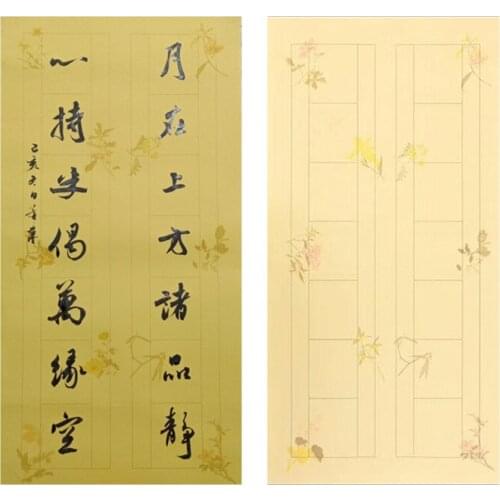 月在上方諸品靜
心持半偈萬緣空
己亥冬日